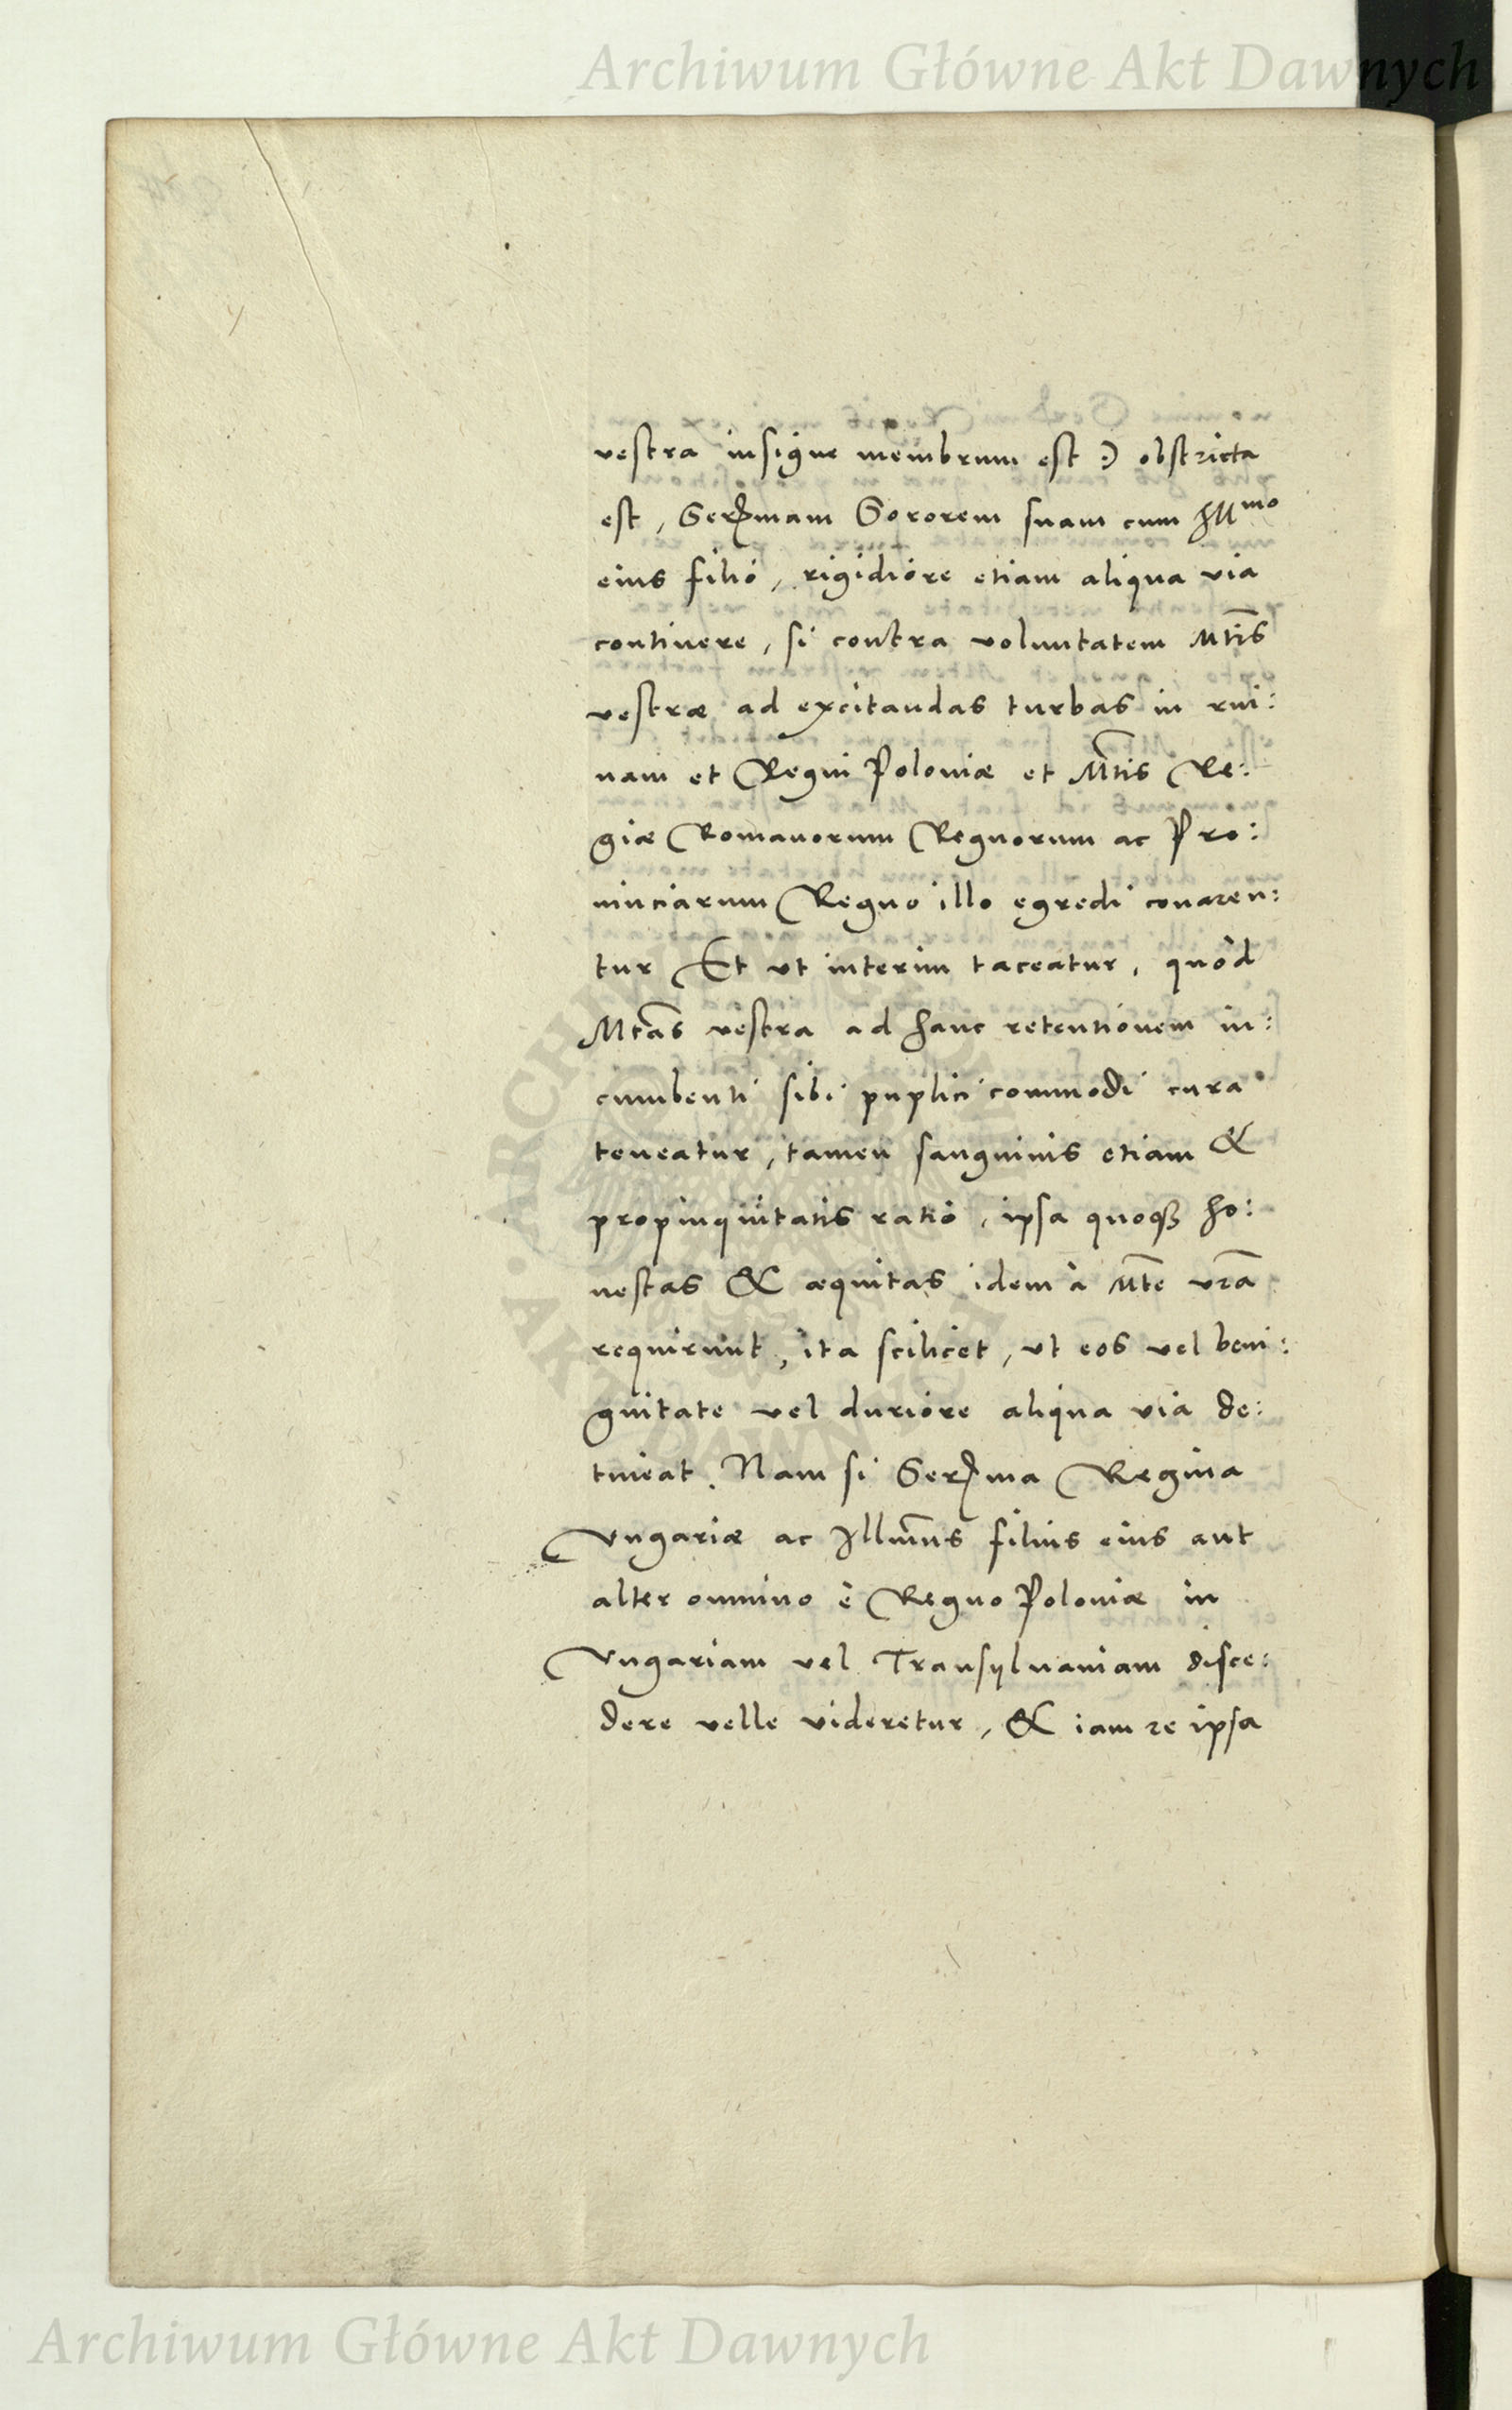 Archiwum Główne Akt Dawnych
vestra insigne membrum est :) obstricta
est, Serꝫmam Sororem suam cum Illmo
eius filio, rigidiore etiam aliqua via
continere, si contra voluntatem Mtis
vestræ ad excitandas turbas in rui:
nam et Regni Poloniæ et Mtis Re:
giæ Romanorum Regnorum ac Pro:
vinciarum Regno illo egredi conaren:
tur Et vt interim taceatur, quòd
Mtas vestra ad hanc retentionem in:
cumbenti sibi puplici commodi cura
teneatur, tamen sanguinis etiam &
propinquitatis ratio, ipsa quoqꝫ ho:
nestas & æquitas idem à Mte vra
requirunt, ita scilicet, vt eos vel beni:
gnitate vel duriore aliqua via de:
tineat. Nam si Serꝫma Regina
Vngariæ ac Illmus filius eius aut
alter omnino è Regno Poloniæ in
Vngariam vel Transylvaniam disce:
dere velle videretur, & iam re ipsa
Archiwum Główne Akt Dawnych